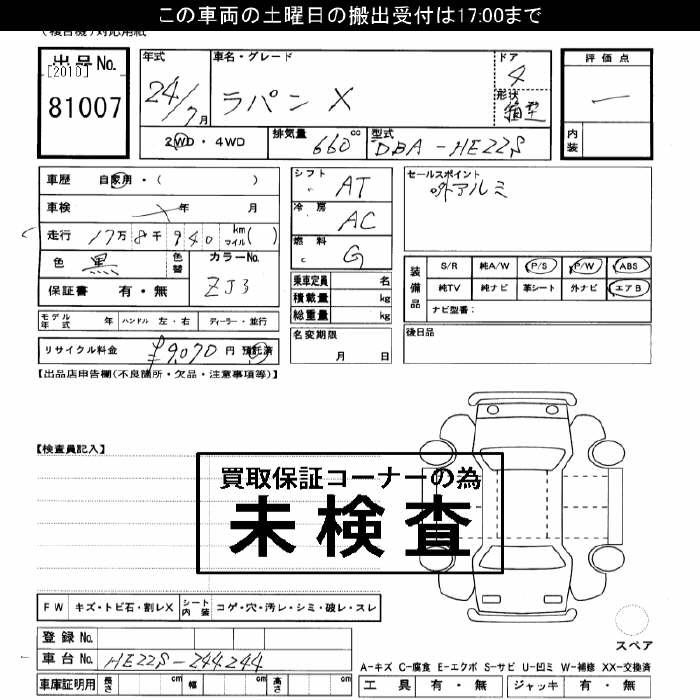 この車両の土曜日の搬出受付は17:00まで
(複合機)対応用紙
出品No.
[2010]
81007
年式
24/7月
車名・グレード
ラパン X
ドア
4
形状
箱型
評価点
―
内装
2WD・4WD
排気量 660cc
型式 DBA-HE22S
車歴 自家用・( )
車検 年 月
走行 17万8千940 km マイル( )
色 黒
色替
カラーNo.
ZJ3
保証書 有・無
シフト AT
冷房 AC
燃料 G
乗車定員 名
積載量 kg
総重量 kg
セールスポイント
外アルミ
装備品
S/R 純A/W P/S P/W ABS
純TV 純ナビ 革シート 外ナビ エアB
ナビ型番:
モデル年式 年 ハンドル 左・右 ディーラー・並行
名変期限
月 日
後日品
リサイクル料金 ¥9,070 円 預託済
【出品店申告欄(不良箇所・欠品・注意事項等)】
【検査員記入】
買取保証コーナーの為
未検査
FW キズ・トビ石・割レX シート内装 コゲ・穴・汚レ・シミ・破レ・スレ
登録No.
車台No. HE22S-244244
車庫証明用 長さ cm 幅 cm 高さ cm
スペア
A-キズ C-腐食 E-エクボ S-サビ U-凹ミ W-補修 XX-交換済
工具 有・無 ジャッキ 有・無